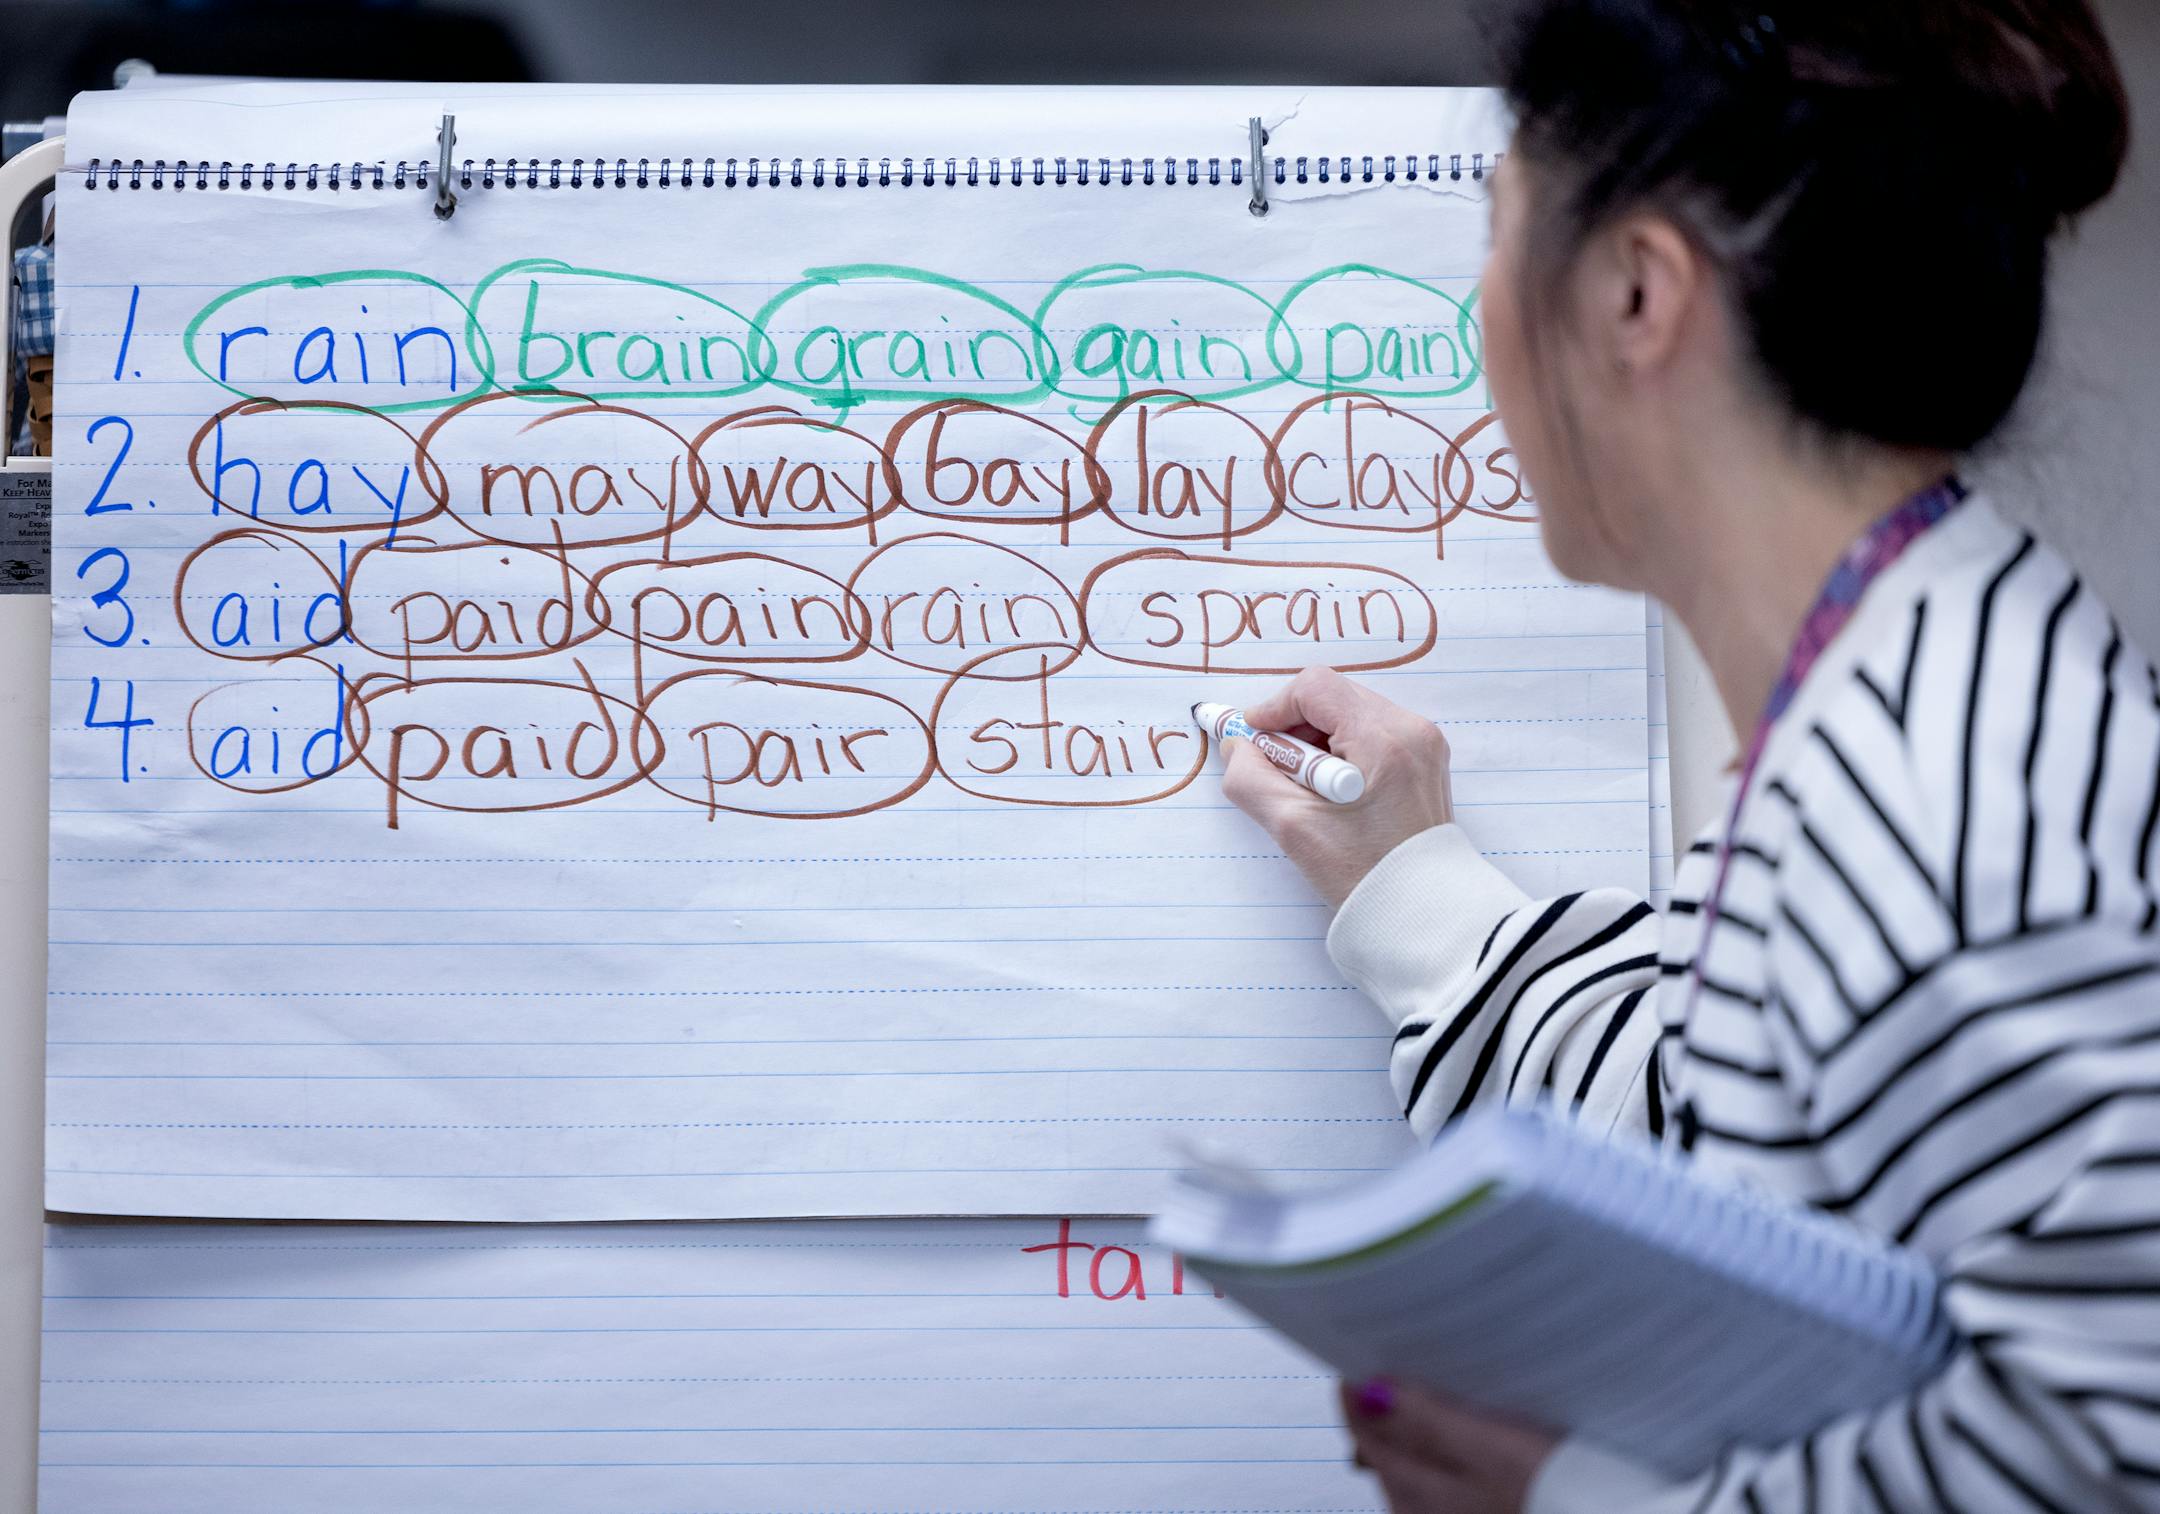 1. rain brain grain gain pain
2. hay may way bay lay clay
3. aid paid pain rain sprain
4. aid paid pair stair
Crayola
For Ma
KEEP HEAV
Expo
Royal™
Expo
Markers